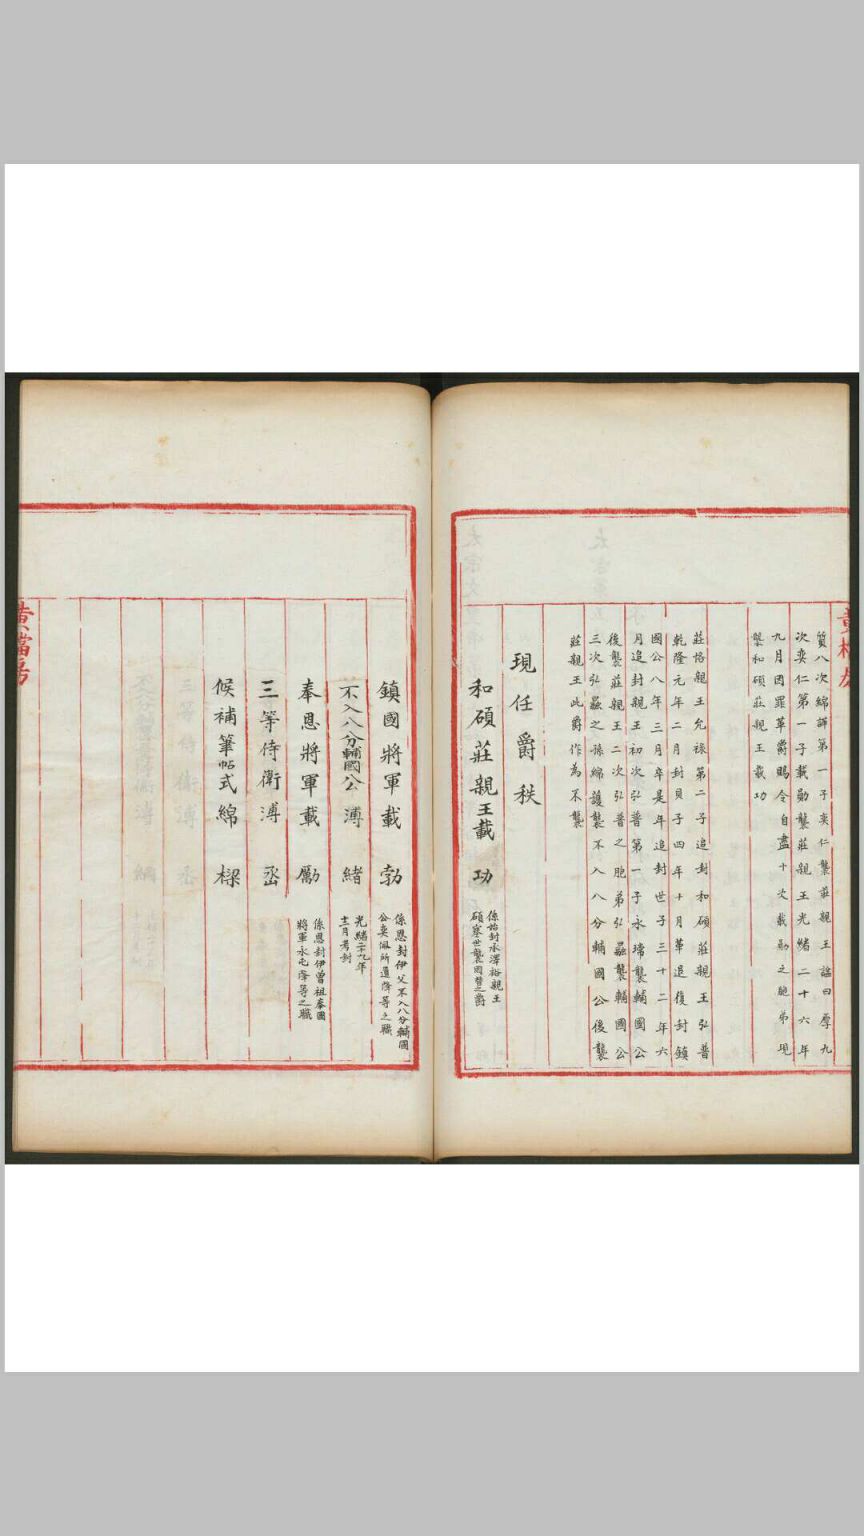 質八次綿譁第一子奕仁襲莊親王諡曰厚九
次奕仁第一子載勛襲莊親王光緒二十六年
九月因罪革爵賜令自盡十次載勛之胞弟現
襲和碩莊親王載功
莊恪親王允祿第二子追封和碩莊親王弘普
乾隆元年二月封貝子四年十月革退復封鎮
國公八年三月卒是年追封世子三十二年六
月追封親王初次弘普第一子永瑺襲輔國公
後襲莊親王二次弘普之胞弟弘𪻺襲輔國公
三次弘𪻺之孫綿護襲不入八分輔國公後襲
莊親王此爵作為不襲
現任爵秩
和碩莊親王載功
係始封承澤裕親王
碩塞世襲罔替之爵
鎮國將軍載勃
係恩封伊父不入八分輔國
公奕佩所遺降等之職
不入八分輔國公溥緒
光緒二十九年
十二月考封
奉恩將軍載勵
係恩封伊曾祖奉國
將軍永屯降等之職
三等侍衛溥丞
候補筆帖式綿樑
黃檔房